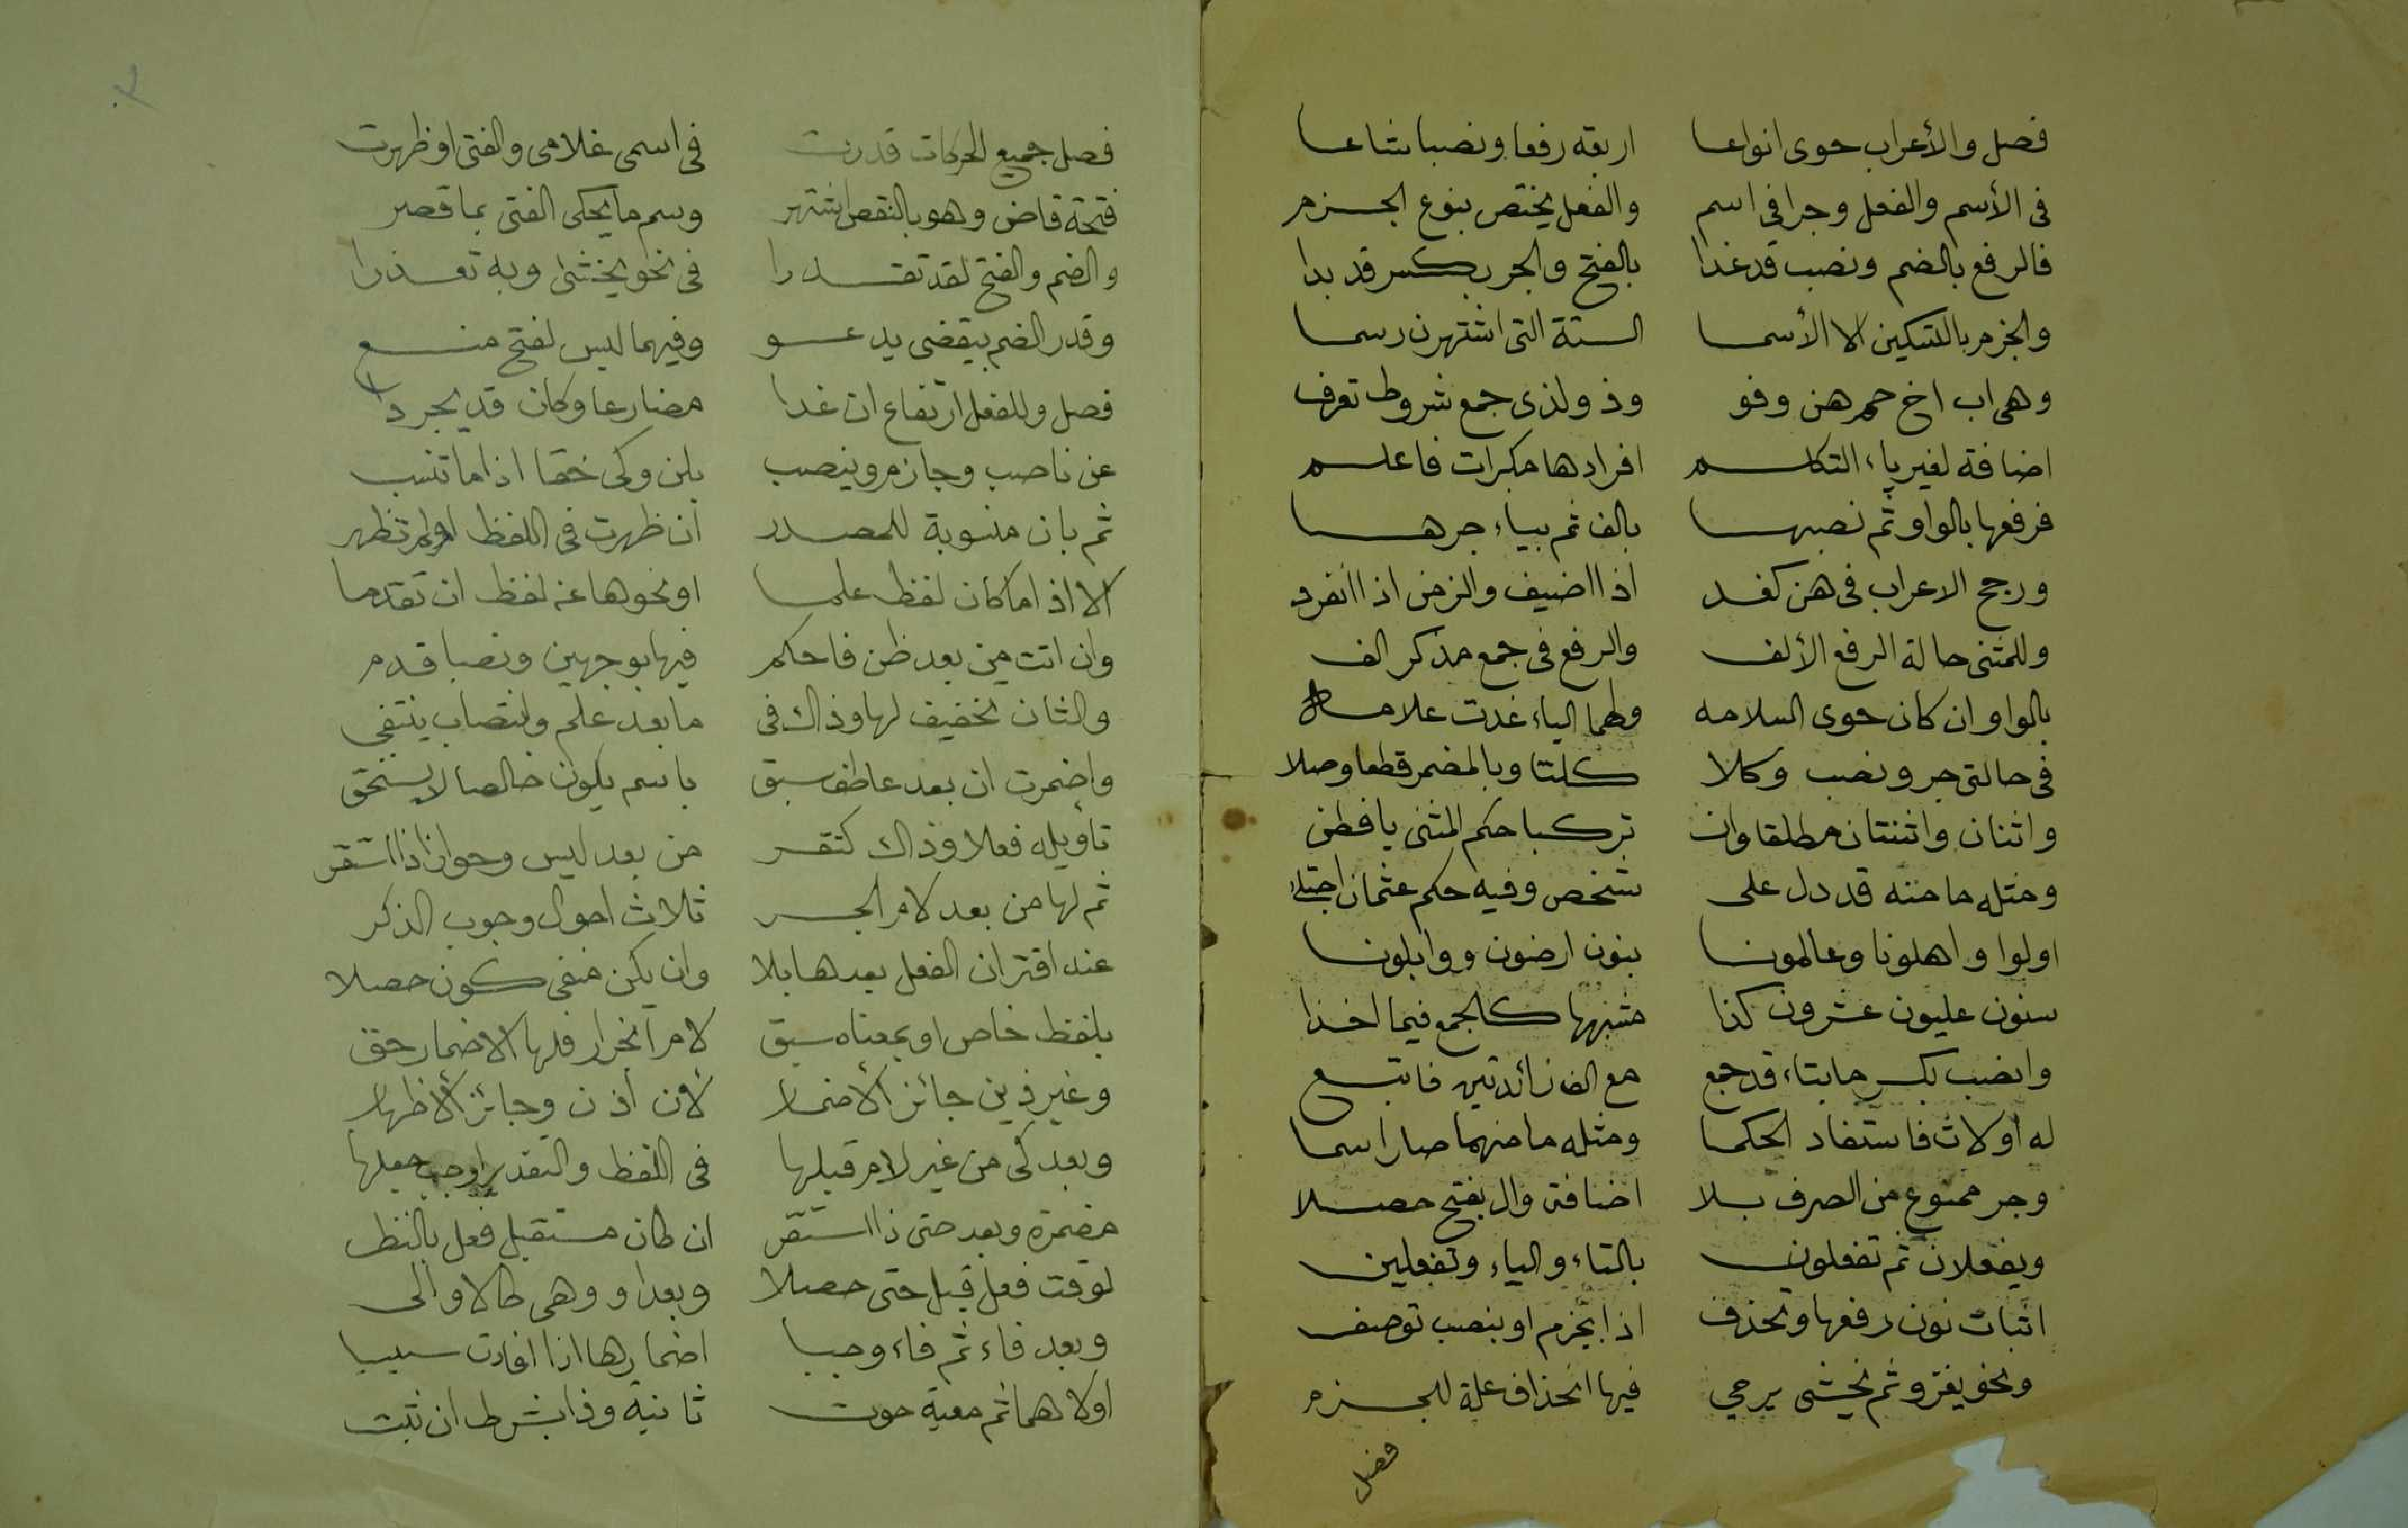 فصل والأعراب حوى انواعا اربعة رفعا ونصبا شاعا
فى الأسم والفعل وجرا في اسم والفعل يختص بنوع الجزم
فالرفع بالضم ونصب قد غدا بالفتح والجر بكسر قد بدا
والجزم بالتسكين الا الأسما الستة التى اشتهرن رسما
وهى اب اخ حم هن وفو وذو لذى جمع شروط تعرف
اضافة لغير ياء التكلم افرادها مكبرات فاعلم
فرفعها بالواو ثم نصبها بالف ثم بياء جرها
ورجح الاعراب فى هن كغد اذا اضيف والزمن اذا انفرد
وللمثنى حالة الرفع الألف والرفع فى جمع مذكر الف
بالواو ان كان حوى السلامه ولهما الياء غدت علامه
فى حالتى جر ونصب وكلا كلتا وبالمضمر قطعا وصلا
واثنان واثنتان مطلقا وان تركبا حكم المثنى يا فطن
ومثله ما منه قد دل على شخص وفيه حكم عثمان اجتلا
اولوا واهلونا وعالمونا بنون ارضون ووابلونا
سنون عليون عشرون كذا مشبهها كالجمع فيما اخذا
وانصب بكسر ما بتاء قد جمع مع الف زائدتين فاتبع
له أولات فاستفاد الحكما ومثله ما منهما صار اسما
وجر ممنوع من الصرف بلا اضافة وال بفتح حصلا
ويفعلان ثم تفعلون بالتاء والياء وتفعلين
اثبات نون رفعها وتحذف اذا بجزم او بنصب توصف
ونحو يغزو ثم يخشى يرمي فيها انحذاف علة للجزم
فصل
فصل جميع الحركات قدرت فى اسمى غلامى والفتى او ظهرت
فتحة قاض وهو بالنقص اشتهر وسم ما يحكى الفتى بما قصر
والضم والفتح لقد تقدرا فى نحو يخشى وبه تعذرا
وقدر الضم بيقضى يدعو وفيهما ليس لفتح منع
فصل وللفعل ارتفاع ان غدا مضارعا وكان قد يجردا
عن ناصب وجازم وينصب بلن وكى حقا اذا ما تنسب
ثم بان منسوبة للمصدر أن ظهرت فى اللفظ او لم تظهر
الا اذا ما كان لفظ علما او نحوها عنه لفظ ان تقدما
وان اتت من بعد ظن فاحكم فيها بوجهين ونصبا قدم
والثان تخفيف لها وذاك فى ما بعد علم وانتصاب ينتفى
واضمرت ان بعد عاطف سبق باسم يكون خالصا لا يستحق
تأويله فعلا وذاك كتقر من بعد ليس وجوازا ذا استقر
ثم لها من بعد لام الجر ثلاث احوال وجوب الذكر
عند اقتران الفعل بعدها بلا وان يكن منفى كون حصلا
بلفظ خاص او بمعناه سبق لام انجرار فلها الاضمار حق
وغير ذين جائز الأضمار لأن أذن وجائز الأظهار
وبعد كى من غير لام قبلها فى اللفظ والتقدير اوجب جعلها
مضمرة وبعد حتى ذا استقر ان كان مستقبل فعل بالنظر
لوقت فعل قبل حتى حصلا وبعد او وهى كالا والى
وبعد فاء ثم فاء وجبا اضمارها اذا افادت سببا
اولاهما ثم معية حوت ثانية وذا بشرط ان ثبت